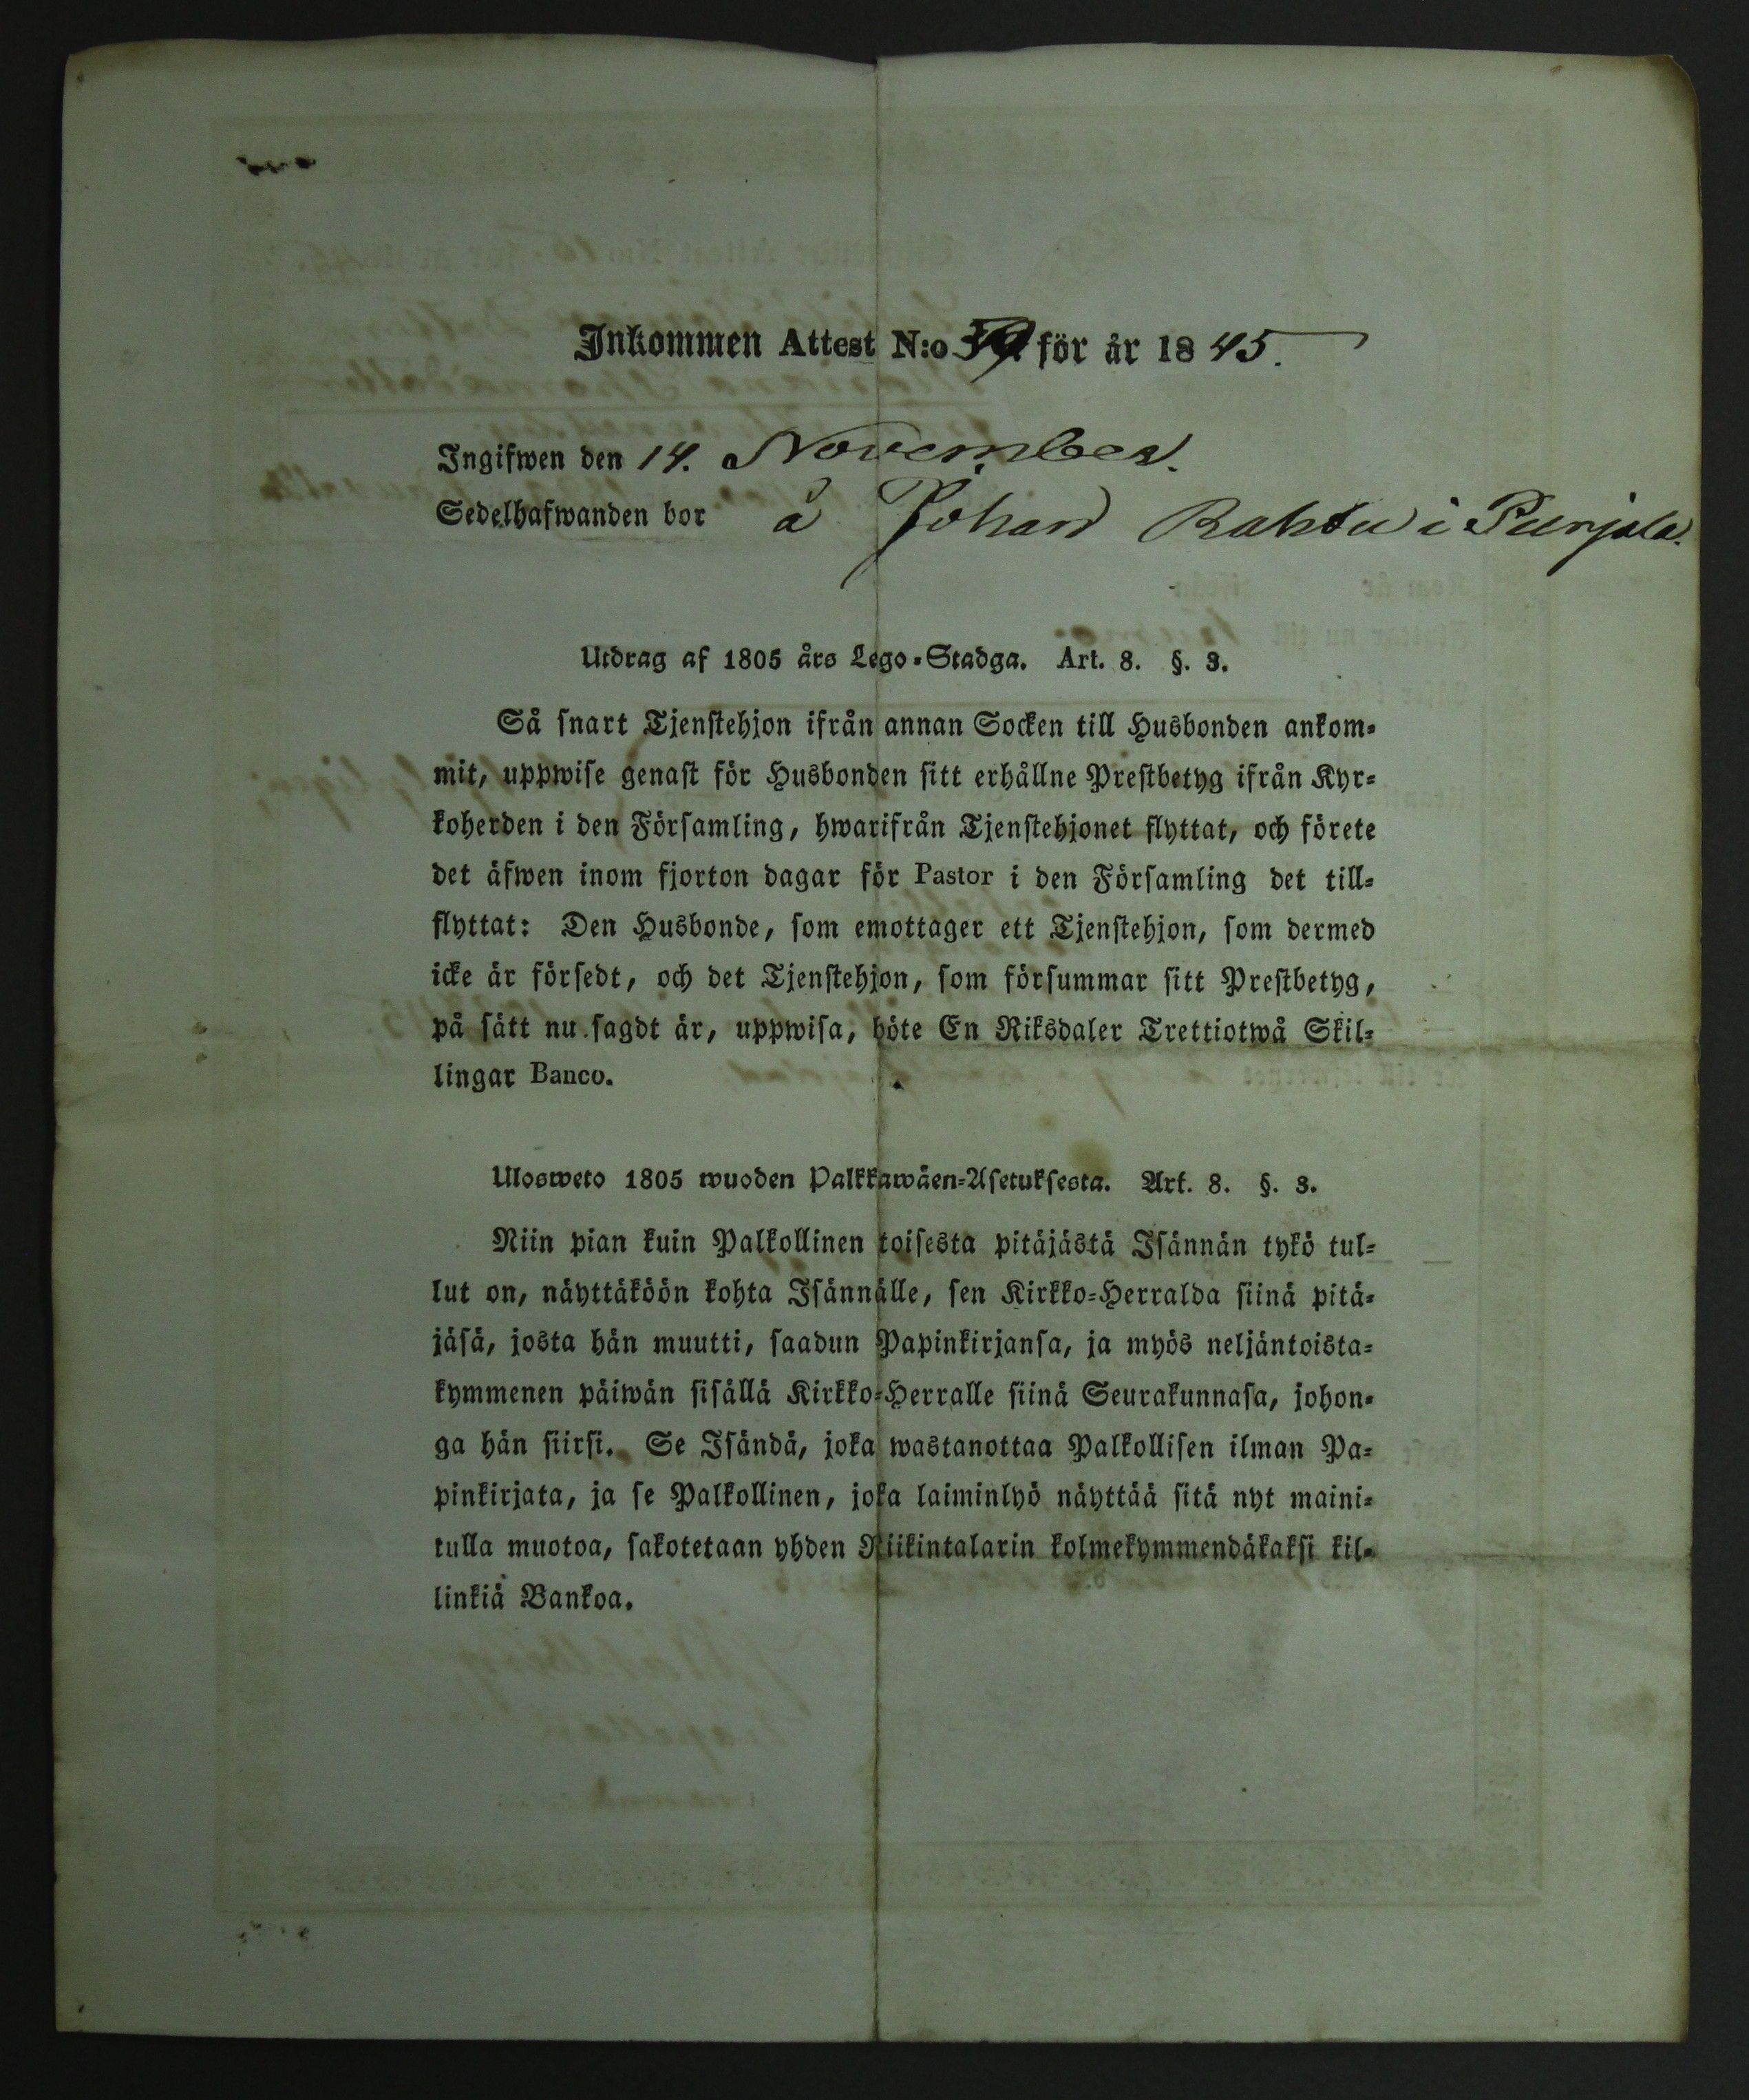 Inkommen Attest N:o 59. för år 1845.
Ingifwen den 14. November.
Sedelhafwanden bor å Johan Rahtu i Punjala.
Utdrag af 1805 års Lego-Stadga. Art. 8. §. 3.
Så snart Tjenstehjon ifrån annan Socken till Husbonden ankom-
mit, uppwise genast för Husbonden sitt erhållne Prestbetyg ifrån Kyr-
koherden i den Församling, hwarifrån Tjenstehjonet flyttat, och förete
det äfwen inom fjorton dagar för Pastor i den Församling det till-
flyttat: Den Husbonde, som emottager ett Tjenstehjon, som dermed
icke är försedt, och det Tjenstehjon, som försummar sitt Prestbetyg,
på sätt nu sagdt är, uppwisa, böte En Riksdaler Trettiotwå Skil-
lingar Banco.
Ulosweto 1805 wuoden Palkkawäen-Asetuksesta. Art. 8. §. 3.
Niin pian kuin Palkollinen toisesta pitäjästä Isännän tykö tul-
lut on, näyttäköön kohta Isännälle, sen Kirkko-Herralda siinä pitä-
jäsä, josta hän muutti, saadun Papinkirjansa, ja myös neljäntoista-
kymmenen päiwän sisällä Kirkko-Herralle siinä Seurakunnasa, johon-
ga hän siirsi. Se Isändä, joka wastanottaa Palkollisen ilman Pa-
pinkirjata, ja se Palkollinen, joka laiminlyö näyttää sitä nyt maini-
tulla muotoa, sakotetaan yhden Riikintalarin kolmekymmendäkaksi kil-
linkiä Bankoa.